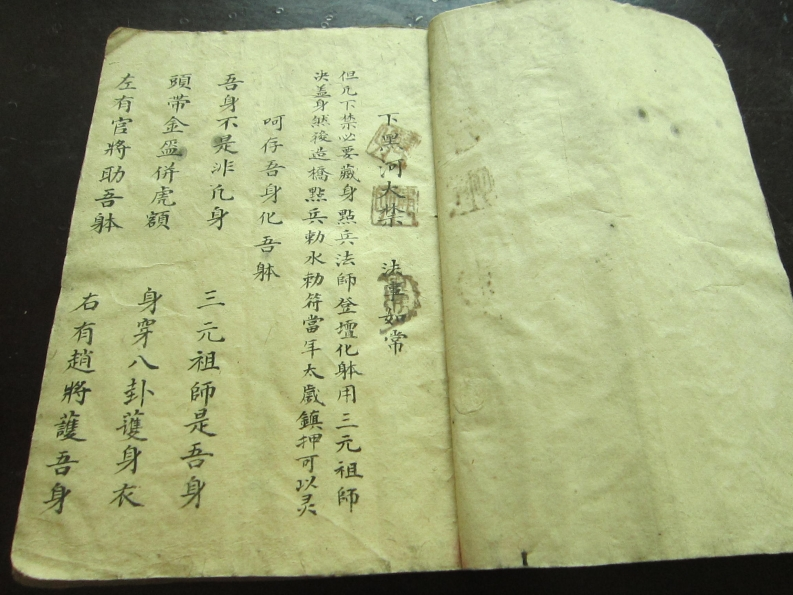 下黑河大禁 法事如常
但凡下禁必要藏身點兵法師登壇化躰用三元祖師
决盖身然後造橋點兵勅水勅符當年太歲鎮押可以灵
呵存吾身化吾躰
吾身不是非凢身 三元祖師是吾身
頭帶金盔併虎額 身穿八卦護身衣
左有官將助吾躰 右有趙將護吾身